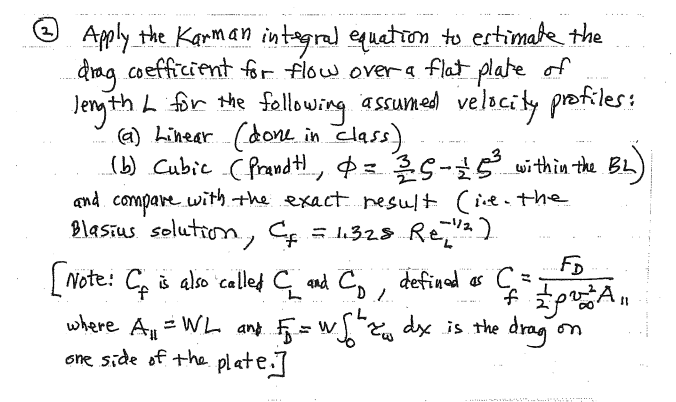 ② Apply the Karman integral equation to estimate the
drag coefficient for flow over a flat plate of
length L for the following assumed velocity profiles:
(a) Linear (done in class)
(b) Cubic (Prandtl, ϕ = 3/2 ζ - 1/2 ζ³ within the BL)
and compare with the exact result (i.e. the
Blasius solution, C_f = 1.328 Re_L^{-1/2})
[Note: C_f is also called C_L and C_D, defined as C_f = F_D / (1/2 ρ v_∞² A_∥)
where A_∥ = WL and F_D = W ∫₀ᴸ τ_w dx is the drag on
one side of the plate.]